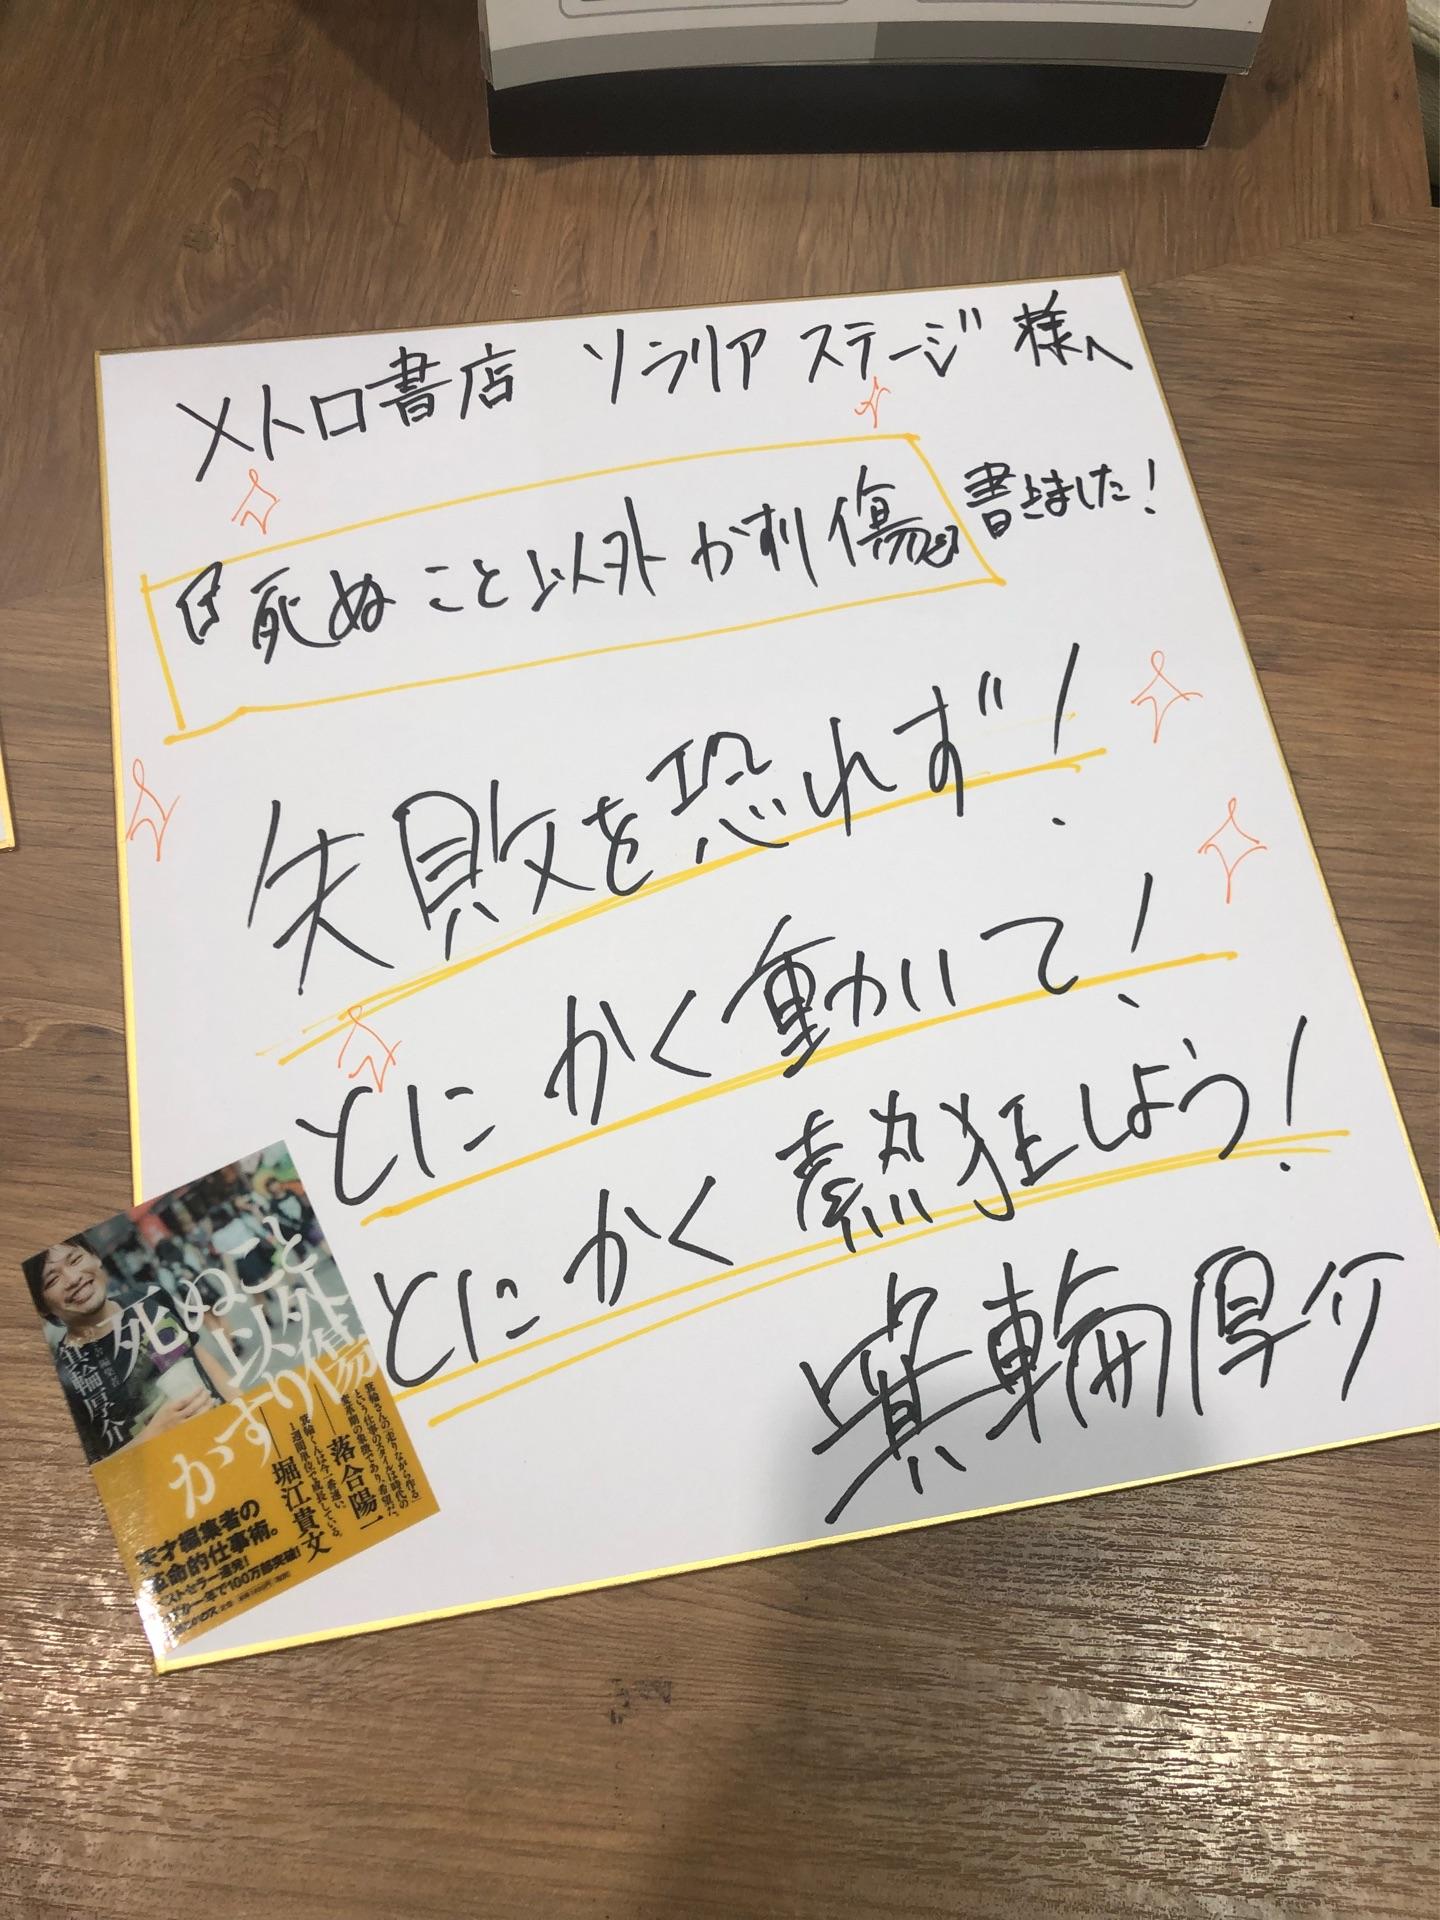 メトロ書店 ソラリア ステージ 様へ
『死ぬこと以外かすり傷』書きました!
失敗を恐れず!
とにかく動いて!
とにかく熱狂しよう!
箕輪厚介
死ぬこと
以外
かすり傷
編集者
箕輪厚介
箕輪さんの「走りながら作る」
という仕事のスタイルは時代の
変革期の象徴であり、希望だ。
——落合陽一
箕輪くんは今一番速い。
1週間単位で成長している。
——堀江貴文
天才編集者の
革命的仕事術。
ストセラー連発!
一年で100万部突破!